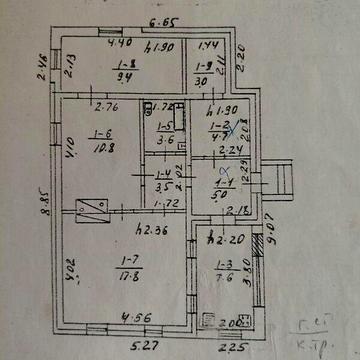 6.65
4.40
h1.90
1.44
2.46
2.13
1-8
9.4
1-9
3.0
2.11
2.20
2.76
1.72
h1.90
1-6
10.8
1-5
3.6
1-2
4.7
2.08
4.10
2.24
1-4
3.5
2.02
1-1
5.0
2.29
8.85
1.72
2.18
h2.36
h2.20
9.07
4.02
1-7
17.8
1-3
7.6
3.80
4.56
2.00
5.27
2.25
к.тр.